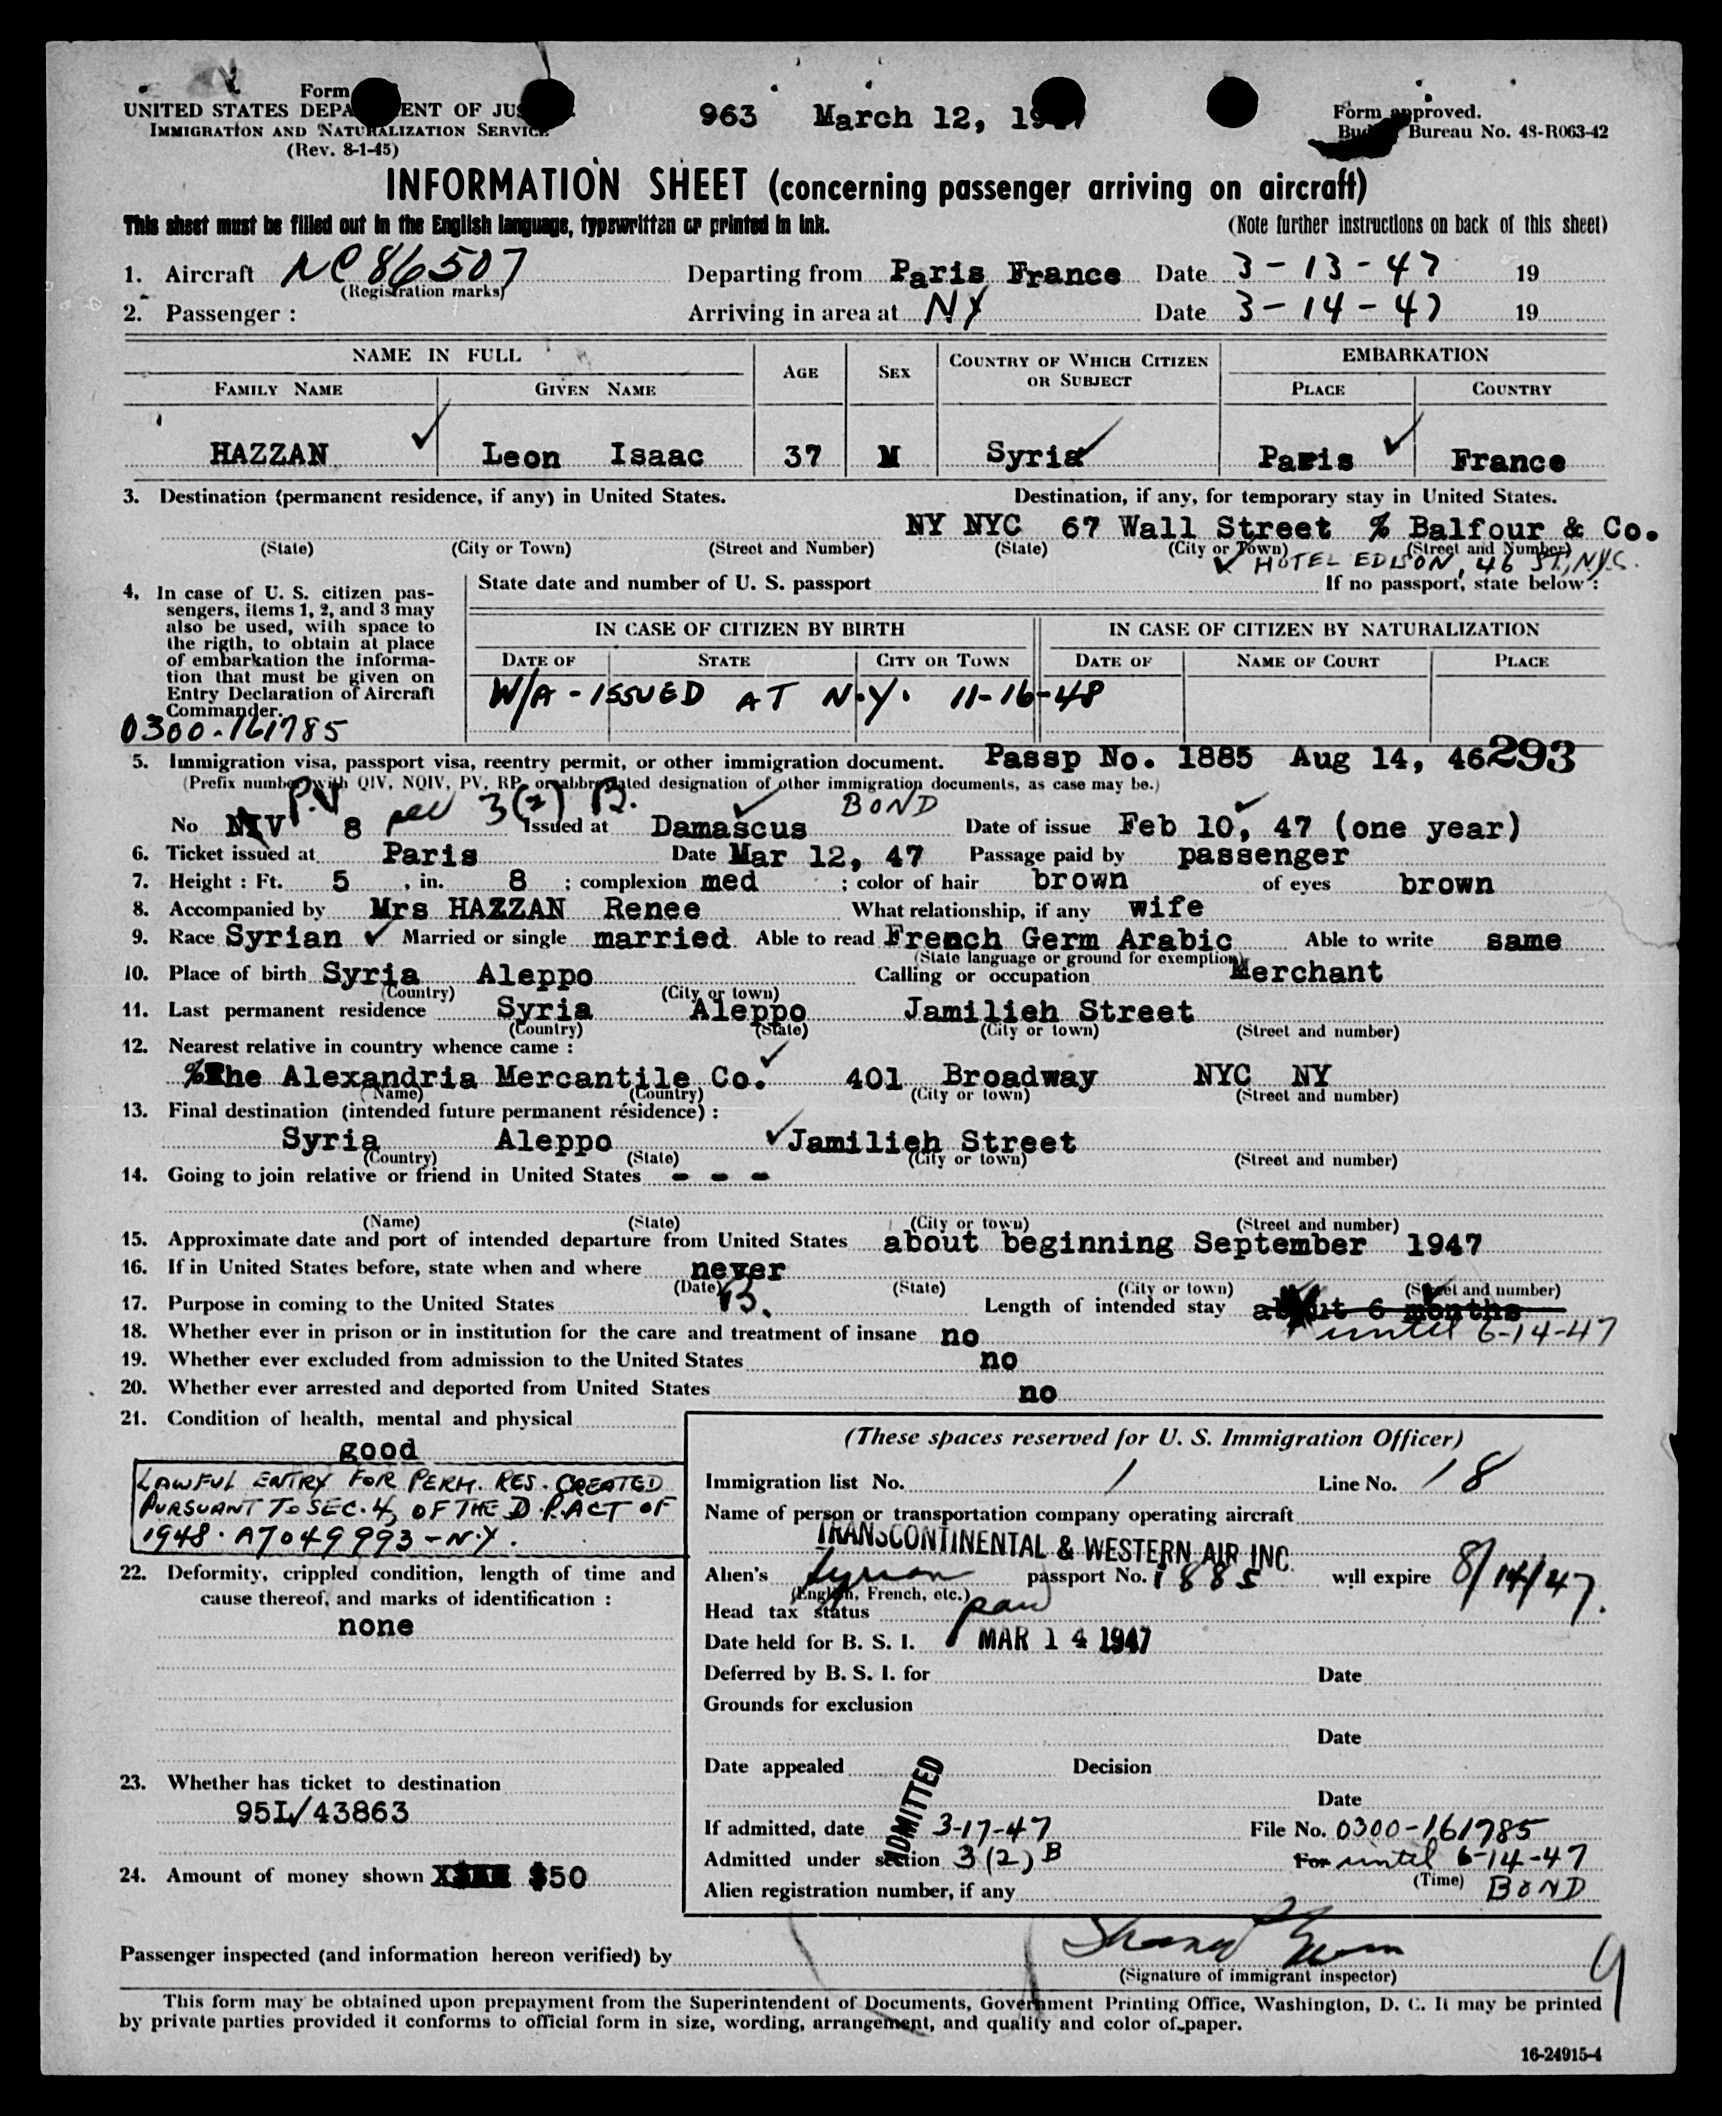 Form
UNITED STATES DEPA ENT OF JUS
IMMIGRATION AND NATURALIZATION SERVICE
(Rev. 8-1-45)
963 March 12, 1947
Form approved.
Budget Bureau No. 43-R063-42
INFORMATION SHEET (concerning passenger arriving on aircraft)
This sheet must be filled out in the English language, typewritten or printed in ink. (Note further instructions on back of this sheet)
1. Aircraft NC 86507 Departing from Paris France Date 3-13-47 19
(Registration marks)
2. Passenger : Arriving in area at NY Date 3-14-47 19
NAME IN FULL AGE SEX COUNTRY OF WHICH CITIZEN OR SUBJECT EMBARKATION
FAMILY NAME GIVEN NAME PLACE COUNTRY
HAZZAN Leon Isaac 37 M Syria Paris France
3. Destination (permanent residence, if any) in United States. Destination, if any, for temporary stay in United States.
NY NYC 67 Wall Street % Balfour & Co.
(State) (City or Town) (Street and Number) (State) (City or Town) (Street and Number)
HOTEL EDISON, 46 ST, N.Y.C.
4. In case of U. S. citizen pas-
sengers, items 1, 2, and 3 may
also be used, with space to
the rigth, to obtain at place
of embarkation the informa-
tion that must be given on
Entry Declaration of Aircraft
Commander.
0300-161785
State date and number of U. S. passport If no passport, state below :
IN CASE OF CITIZEN BY BIRTH IN CASE OF CITIZEN BY NATURALIZATION
DATE OF STATE CITY OR TOWN DATE OF NAME OF COURT PLACE
W/A - ISSUED AT N.Y. 11-16-48
5. Immigration visa, passport visa, reentry permit, or other immigration document. Passp No. 1885 Aug 14, 46 293
(Prefix number with QIV, NQIV, PV, RP, or abbreviated designation of other immigration documents, as case may be.)
P.V. 3(2) B. BOND
No NIV 8 Issued at Damascus Date of issue Feb 10, 47 (one year)
6. Ticket issued at Paris Date Mar 12, 47 Passage paid by passenger
7. Height : Ft. 5 , in. 8 ; complexion med ; color of hair brown of eyes brown
8. Accompanied by Mrs HAZZAN Renee What relationship, if any wife
9. Race Syrian Married or single married Able to read French Germ Arabic Able to write same
(State language or ground for exemption)
10. Place of birth Syria Aleppo Calling or occupation Merchant
(Country) (City or town)
11. Last permanent residence Syria Aleppo Jamilieh Street
(Country) (State) (City or town) (Street and number)
12. Nearest relative in country whence came :
% The Alexandria Mercantile Co. 401 Broadway NYC NY
(Name) (Country) (City or town) (Street and number)
13. Final destination (intended future permanent résidence) :
Syria Aleppo Jamilieh Street
(Country) (State) (City or town) (Street and number)
14. Going to join relative or friend in United States - - -
(Name) (State) (City or town) (Street and number)
15. Approximate date and port of intended departure from United States about beginning September 1947
16. If in United States before, state when and where never
(Date) (State) (City or town) (Street and number)
17. Purpose in coming to the United States B. Length of intended stay about 6 months
until 6-14-47
18. Whether ever in prison or in institution for the care and treatment of insane no
19. Whether ever excluded from admission to the United States no
20. Whether ever arrested and deported from United States no
21. Condition of health, mental and physical
good
LAWFUL ENTRY FOR PERM. RES. CREATED
PURSUANT TO SEC. 4, OF THE D.P. ACT OF
1948. A7049993-N.Y.
22. Deformity, crippled condition, length of time and
cause thereof, and marks of identification :
none
23. Whether has ticket to destination
95L/43863
24. Amount of money shown $50
(These spaces reserved for U. S. Immigration Officer)
Immigration list No. 1 Line No. 18
Name of person or transportation company operating aircraft
TRANSCONTINENTAL & WESTERN AIR INC.
Alien's Syrian passport No. 1885 will expire 8/14/47.
(English, French, etc.)
Head tax status paid
Date held for B. S. I. MAR 14 1947
Deferred by B. S. I. for Date
Grounds for exclusion
Date
Date appealed Decision
Date
ADMITTED
If admitted, date 3-17-47 File No. 0300-161785
Admitted under section 3(2) B For until 6-14-47
(Time) BOND
Alien registration number, if any
Passenger inspected (and information hereon verified) by
(Signature of immigrant inspector)
9
This form may be obtained upon prepayment from the Superintendent of Documents, Government Printing Office, Washington, D. C. It may be printed
by private parties provided it conforms to official form in size, wording, arrangement, and quality and color of paper.
16-24915-4